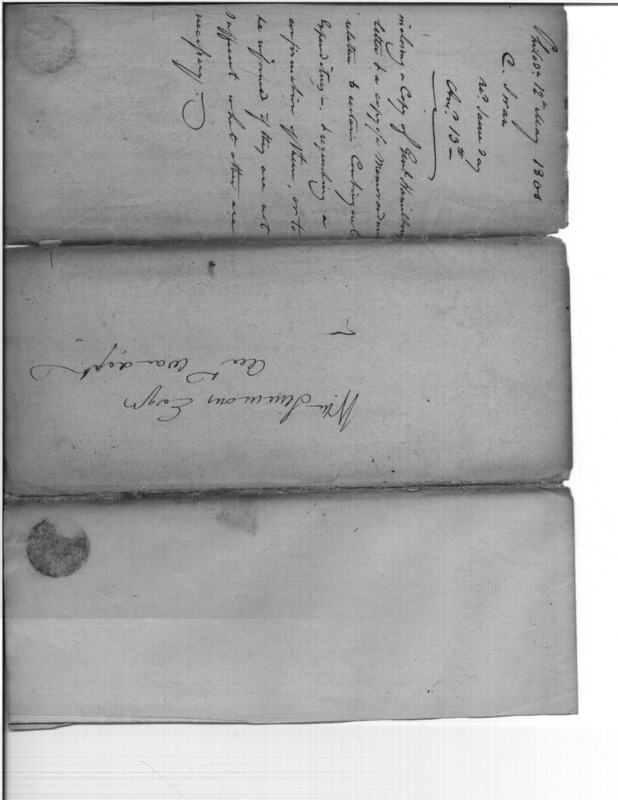 Philada. 12th May 1800
C. Swan
recd. same day
Ansd. 13th
inclosing a Copy of Genl. Hamiltons
letter & a copy of a Memorandum
relative to certain Contingent
Expenditures & requesting a
confirmation of them, or to
be informed if they are not
sufficient what other are
necessary.
Wm. Simmons Esqr.
Acct. War dept.